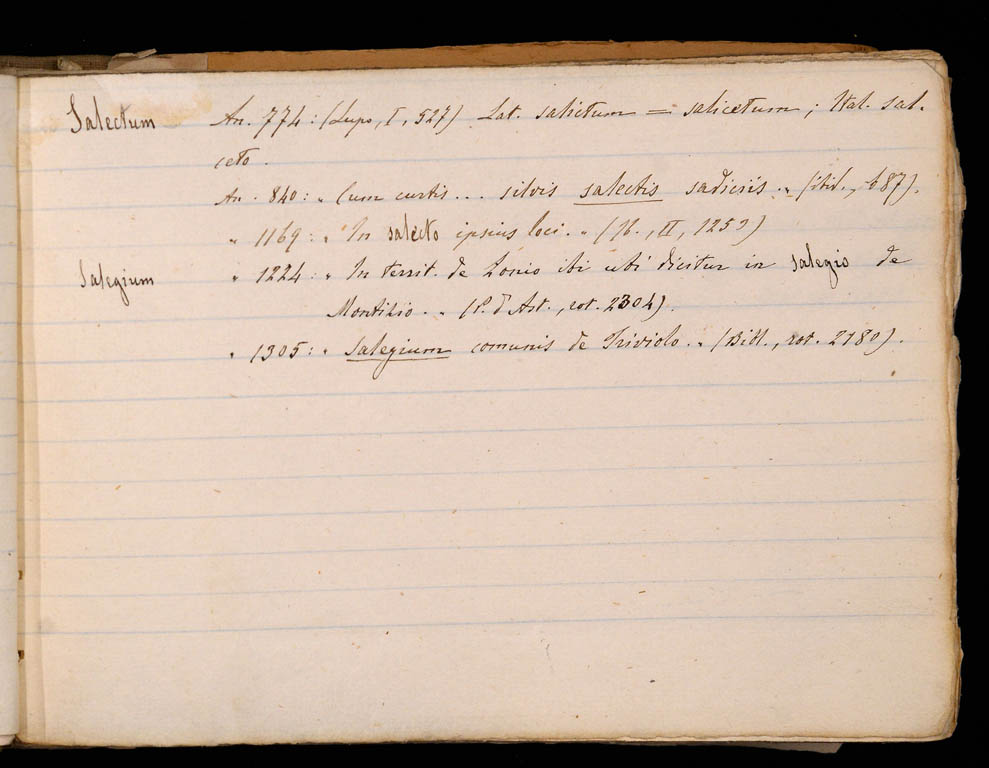 Salectum An. 774: (Lupo, I, 527). Lat. salictum = salicetum; Ital. sal-
ceto.
An. 840: „ Cum curtis... silvis salectis sadiciis. „ (ibid., 687).
„ 1169: „ In salecto ipsius loci. „ (Ib., II, 1259)
Salegium „ 1224: „ In territ. de Lonio ibi ubi dicitur in salegio de
Montizio. „ (P. d'Ast., rot. 2304).
„ 1305: „ Salegium comunis de Triviolo. „ (Bibl., rot. 2180).